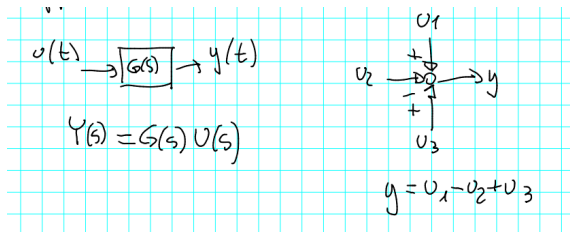 u(t) → G(s) → y(t)
Y(s) = G(s) U(s)
U1
+
U2 y
-
+
U3
y = U1 - U2 + U3